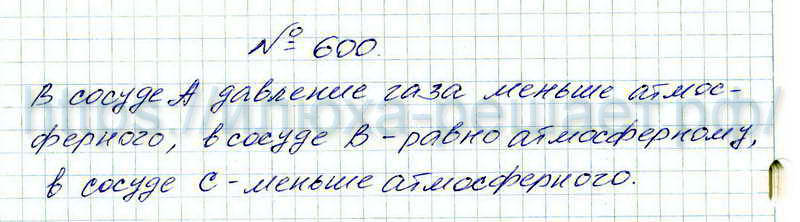 № 600.
В сосуде А давление газа меньше атмос-
ферного, в сосуде В - равно атмосферному,
в сосуде С - меньше атмосферного.